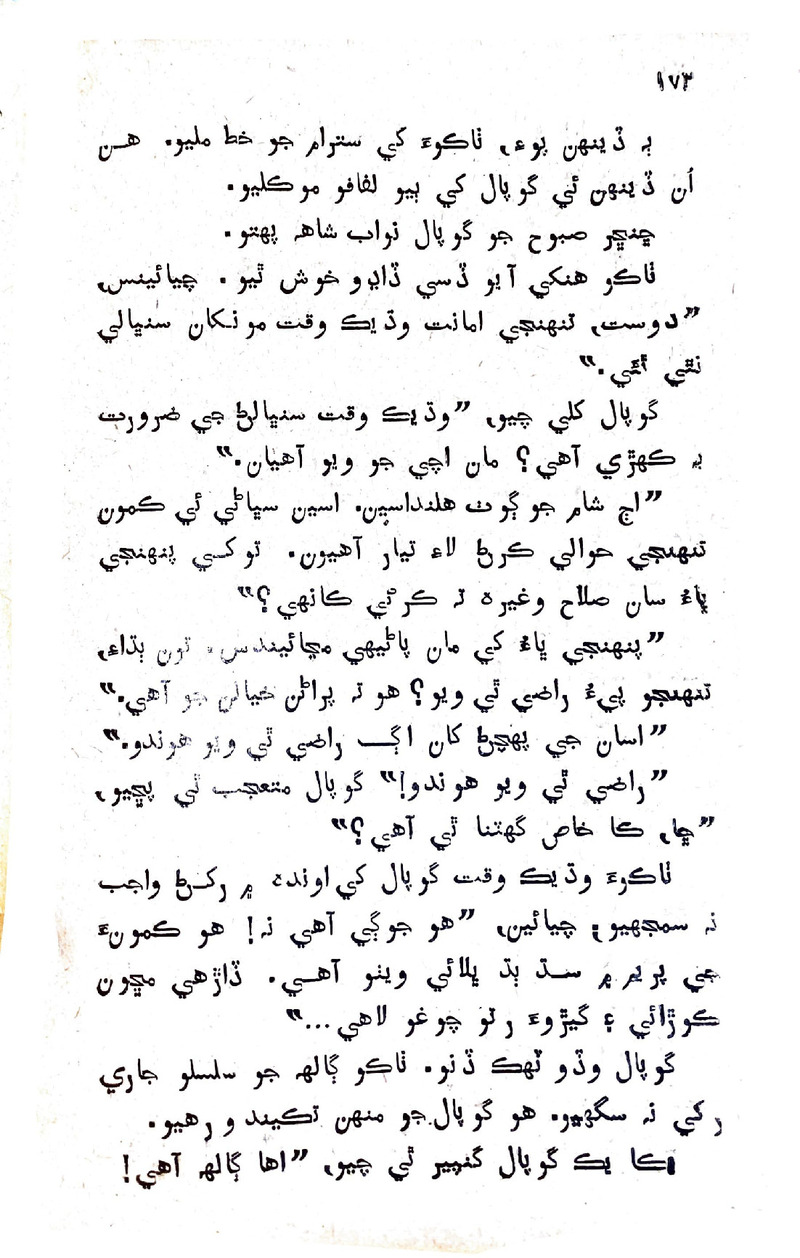 ١٧٣
ٻه ڏينهن پوءِ، ٿاڪوءَ کي ستrام جو خط مليو. هن
اُن ڏينهن ئي گوپال کي ٻيو لفافو موڪليو.
ڇنڇر صبوح جو گوپال نواب شاهه پهتو.
ٿاڪو هنکي آيو ڏسي ڏاڍو خوش ٿيو. چيائينس،
”دوست، تنهنجي امانت وڌيڪ وقت مونکان سنڀالي
نٿي ٿئي.“
گوپال کلي چيو، ”وڌيڪ وقت سنڀالڻ جي ضرورت
به ڪهڙي آهي؟ مان اچي جو ويو آهيان.“
”اڄ شام جو ڳوٺ هلنداسين. اسين سڀاڻي ئي ڪمون
تنهنجي حوالي ڪرڻ لاءِ تيار آهيون. توکي پنهنجي
ڀاءُ سان صلاح وغيره ته ڪرڻي ڪانهي؟“
”پنهنجي ڀاءُ کي مان پاڻيهي مڃائيندس. تون ٻڌاءِ،
تنهنجو پيءُ راضي ٿي ويو؟ هو ته پراڻن خيالن جو آهي.“
”اسان جي پهچڻ کان اڳ راضي ٿي ويو هوندو.“
”راضي ٿي ويو هوندو!“ گوپال متعجب ٿي پڇيو،
”ڇا، ڪا خاص گهٽنا ٿي آهي؟“
ٿاڪوءَ وڌيڪ وقت گوپال کي اونده ۾ رکڻ واجب
نه سمجهيو، چيائين، ”هو جوڳي آهي نه! هو ڪمونءَ
جي پريم ۾ سڌ ٻڌ ڀلائي ويٺو آهي. ڏاڙهي مڇون
ڪوڙائي ۽ گيڙوءَ رتو چوغو لاهي...“
گوپال وڏو ٽهڪ ڏنو. ٿاڪو ڳالهه جو سلسلو جاري
رکي نه سگهيو. هو گوپال جو منهن تڪيندو رهيو.
اڪا يڪ گوپال گنڀير ٿي چيو، ”اها ڳالهه آهي!